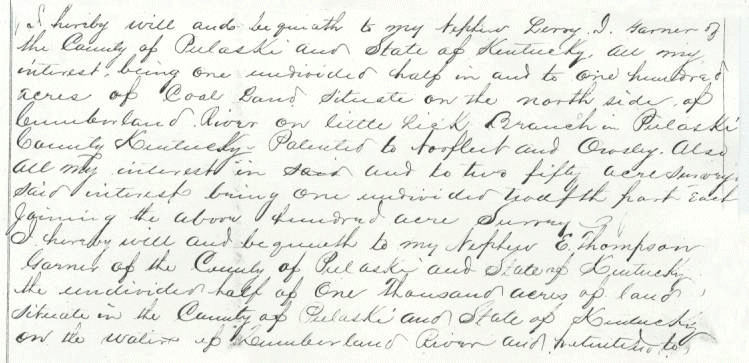 I hereby will and bequeath to my Nephew Leroy. I. Garner of
the County of Pulaski and State of Kentucky, all my
interest, being one undivided half in and to one hundred
acres of Coal Land Situate on the north side of
Cumberland River on little lick Branch in Pulaski
County Kentucky Patented to and Owsley. Also
all my interest in said and to two fifty acre surveys
said interest being one undivided twelfth part Each
Joining the above hundred acre Survey
I hereby will and bequeath to my Nephew E. Thompson
Garner of the County of Pulaski and State of Kentucky
the undivided half of One Thousand acres of land
situate in the County of Pulaski and State of Kentucky
on the waters of Cumberland River and patented to